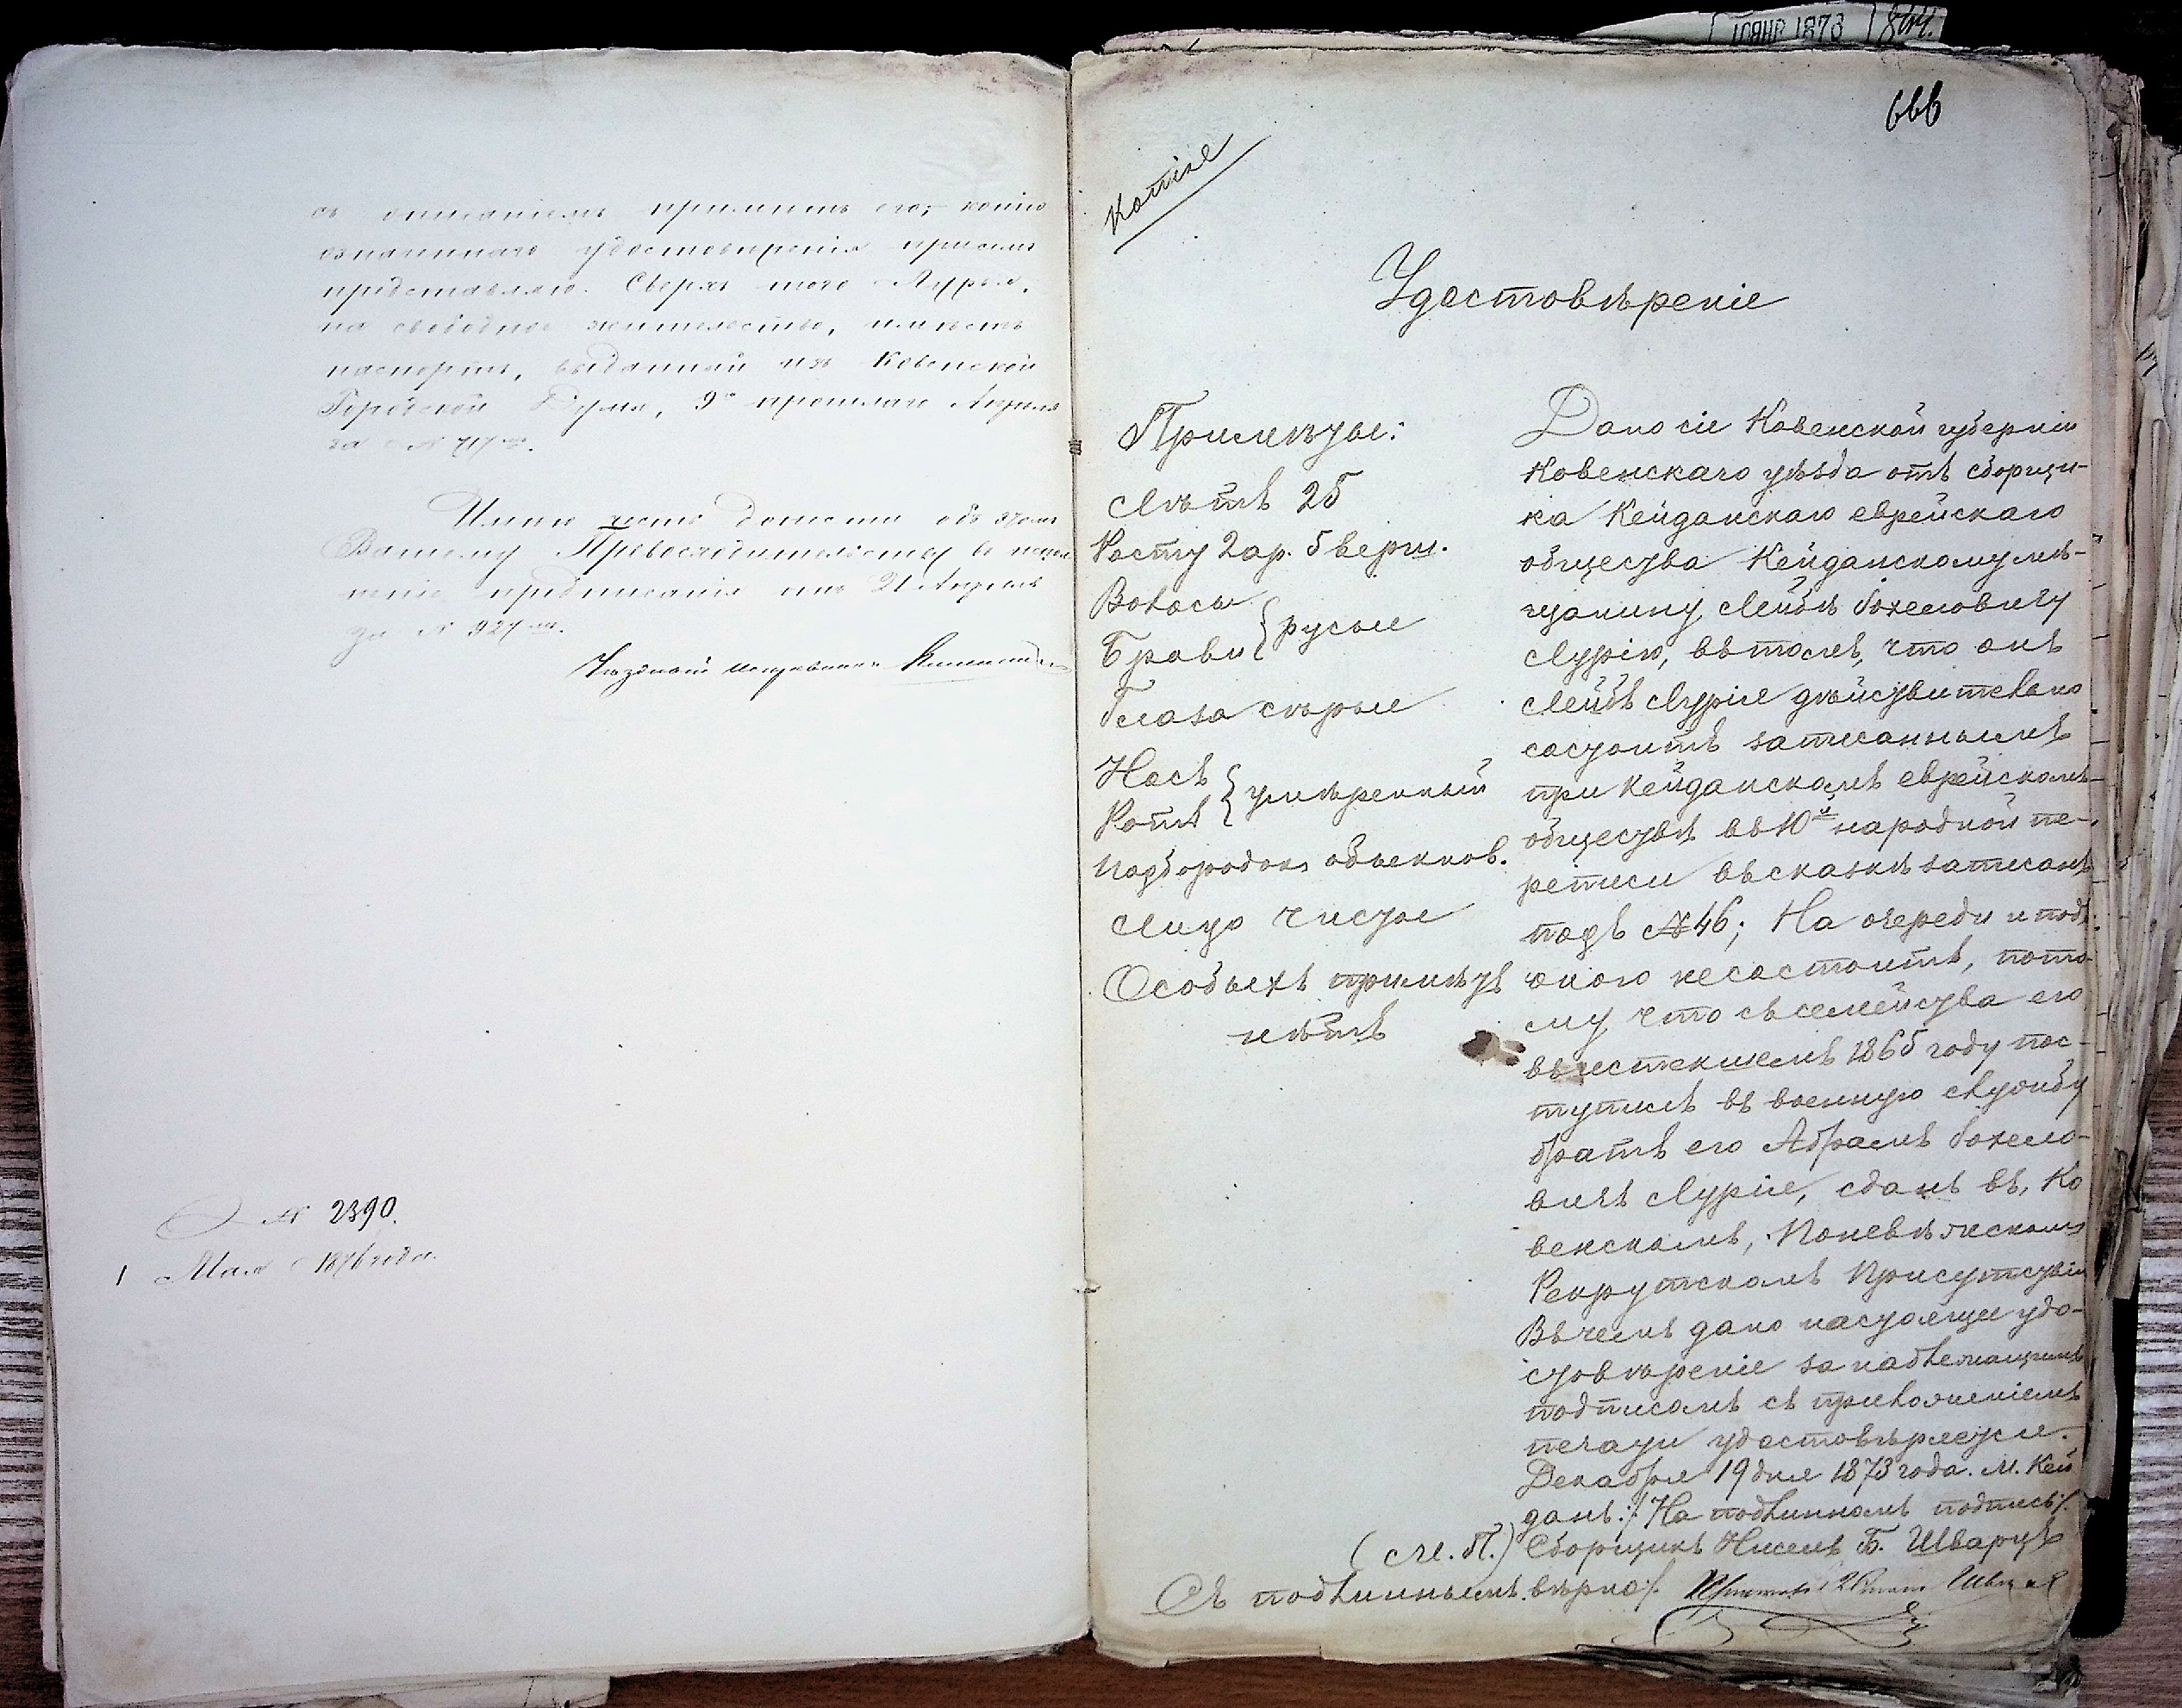 съ описаніемъ примѣтъ его, копію
означеннаго удостовѣренія при семъ
представляю. Сверхъ того Лурья,
на свободное жительство, имѣетъ
паспортъ, выданный изъ Ковенской
Городской Думы, 9го прошлаго Апрѣля
за № 717мъ.
Имѣю честь донести объ этомъ
Вашему Превосходительству во испол
неніе предписанія отъ 21 Апрѣля
за № 927мъ.
Уѣздный исправникъ
№ 2390.
1 Мая 1876 года.
10 ЯНВ 1873
666
Копія
Удостовѣреніе
Примѣты:
Лѣтъ 25
Росту 2 ар. 5 верш.
Волосы
Брови } русые
Глаза сѣрые
Носъ
Ротъ } умѣренный
Подбородокъ обыкнов.
Лицо чистое
Особыхъ примѣтъ
нѣтъ
Дано сіе Ковенской губерніи
Ковенскаго уѣзда отъ сборщи-
ка Кейданскаго еврейскаго
общества Кейданскому мѣ-
щанину Лейбѣ
Лурію, въ томъ, что онъ
Лейбъ Лурія дѣйствительно
состоитъ записаннымъ
при Кейданскомъ еврейскомъ
обществѣ въ 10й народной пе-
реписи въ сказкѣ записанъ
подъ № 46; На очереди и подъ
оною несостоитъ, пото-
му что съ семейства его
въ истекшемъ 1865 году пос-
тупилъ въ военную службу
братъ его Абрамъ
вичъ Лурія, сданъ въ Ко
венскомъ, Поневѣжескомъ
Рекрутскомъ Присутствіи
Въ чемъ дано настоящее удо-
стовѣреніе за надлежащимъ
подписомъ съ приложеніемъ
печати удостовѣряется.
Декабря 19 дня 1873 года. М. Кей
данъ :/ На подлинномъ подпись/.
(М.П.) Сборщикъ Нисенъ Б. Шварцъ
Съ подлиннымъ вѣрно/.